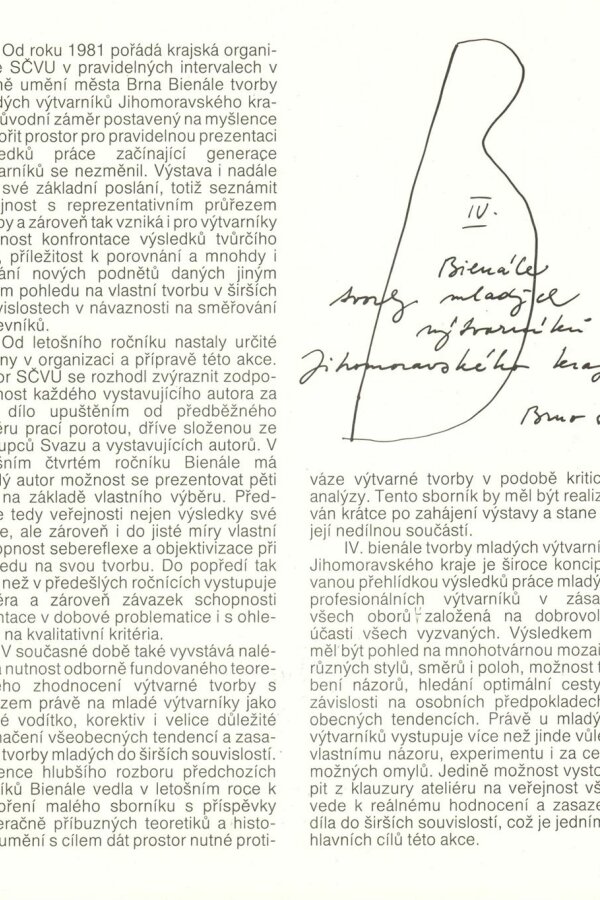 Od roku 1981 pořádá krajská organi-
e SČVU v pravidelných intervalech v
ně umění města Brna Bienále tvorby
dých výtvarníků Jihomoravského kra-
ůvodní záměr postavený na myšlence
ořit prostor pro pravidelnou prezentaci
ledků práce začínající generace
arníků se nezměnil. Výstava i nadále
své základní poslání, totiž seznámit
ejnost s reprezentativním průřezem
by a zároveň tak vzniká i pro výtvarníky
nost konfrontace výsledků tvůrčího
, příležitost k porovnání a mnohdy i
ání nových podnětů daných jiným
m pohledu na vlastní tvorbu v širších
vislostech v návaznosti na směřování
evníků.
Od letošního ročníku nastaly určité
ny v organizaci a přípravě této akce.
or SČVU se rozhodl zvýraznit zodpo-
nost každého vystavujícího autora za
dílo upuštěním od předběžného
ěru prací porotou, dříve složenou ze
upců Svazu a vystavujících autorů. V
šním čtvrtém ročníku Bienále má
lý autor možnost se prezentovat pěti
na základě vlastního výběru. Před-
e tedy veřejnosti nejen výsledky své
e, ale zároveň i do jisté míry vlastní
opnost sebereflexe a objektivizace při
ledu na svou tvorbu. Do popředí tak
než v předešlých ročnících vystupuje
éra a zároveň závazek schopnosti
ntace v dobové problematice i s ohle-
na kvalitativní kritéria.
V současné době také vyvstává nalé-
nutnost odborně fundovaného teore-
ého zhodnocení výtvarné tvorby s
zem právě na mladé výtvarníky jako
é vodítko, korektiv i velice důležité
načení všeobecných tendencí a zasa-
tvorby mladých do širších souvislostí.
ence hlubšího rozboru předchozích
íků Bienále vedla v letošním roce k
oření malého sborníku s příspěvky
eračně příbuzných teoretiků a histo-
umění s cílem dát prostor nutné proti-
IV.
Bienále
tvorby mladých
výtvarníků
Jihomoravského kraj
Brno
váze výtvarné tvorby v podobě kritic
analýzy. Tento sborník by měl být realiz
ván krátce po zahájení výstavy a stane
její nedílnou součástí.
IV. bienále tvorby mladých výtvarní
Jihomoravského kraje je široce koncip
vanou přehlídkou výsledků práce mladý
profesionálních výtvarníků v zása
všech oborů založená na dobrovol
účasti všech vyzvaných. Výsledkem
měl být pohled na mnohotvárnou mozai
různých stylů, směrů i poloh, možnost t
bení názorů, hledání optimální cesty
závislosti na osobních předpokladech
obecných tendencích. Právě u mladý
výtvarníků vystupuje více než jinde vůle
vlastnímu názoru, experimentu i za ce
možných omylů. Jedině možnost vysto
pit z klauzury ateliéru na veřejnost vš
vede k reálnému hodnocení a zasaze
díla do širších souvislostí, což je jedním
hlavních cílů této akce.